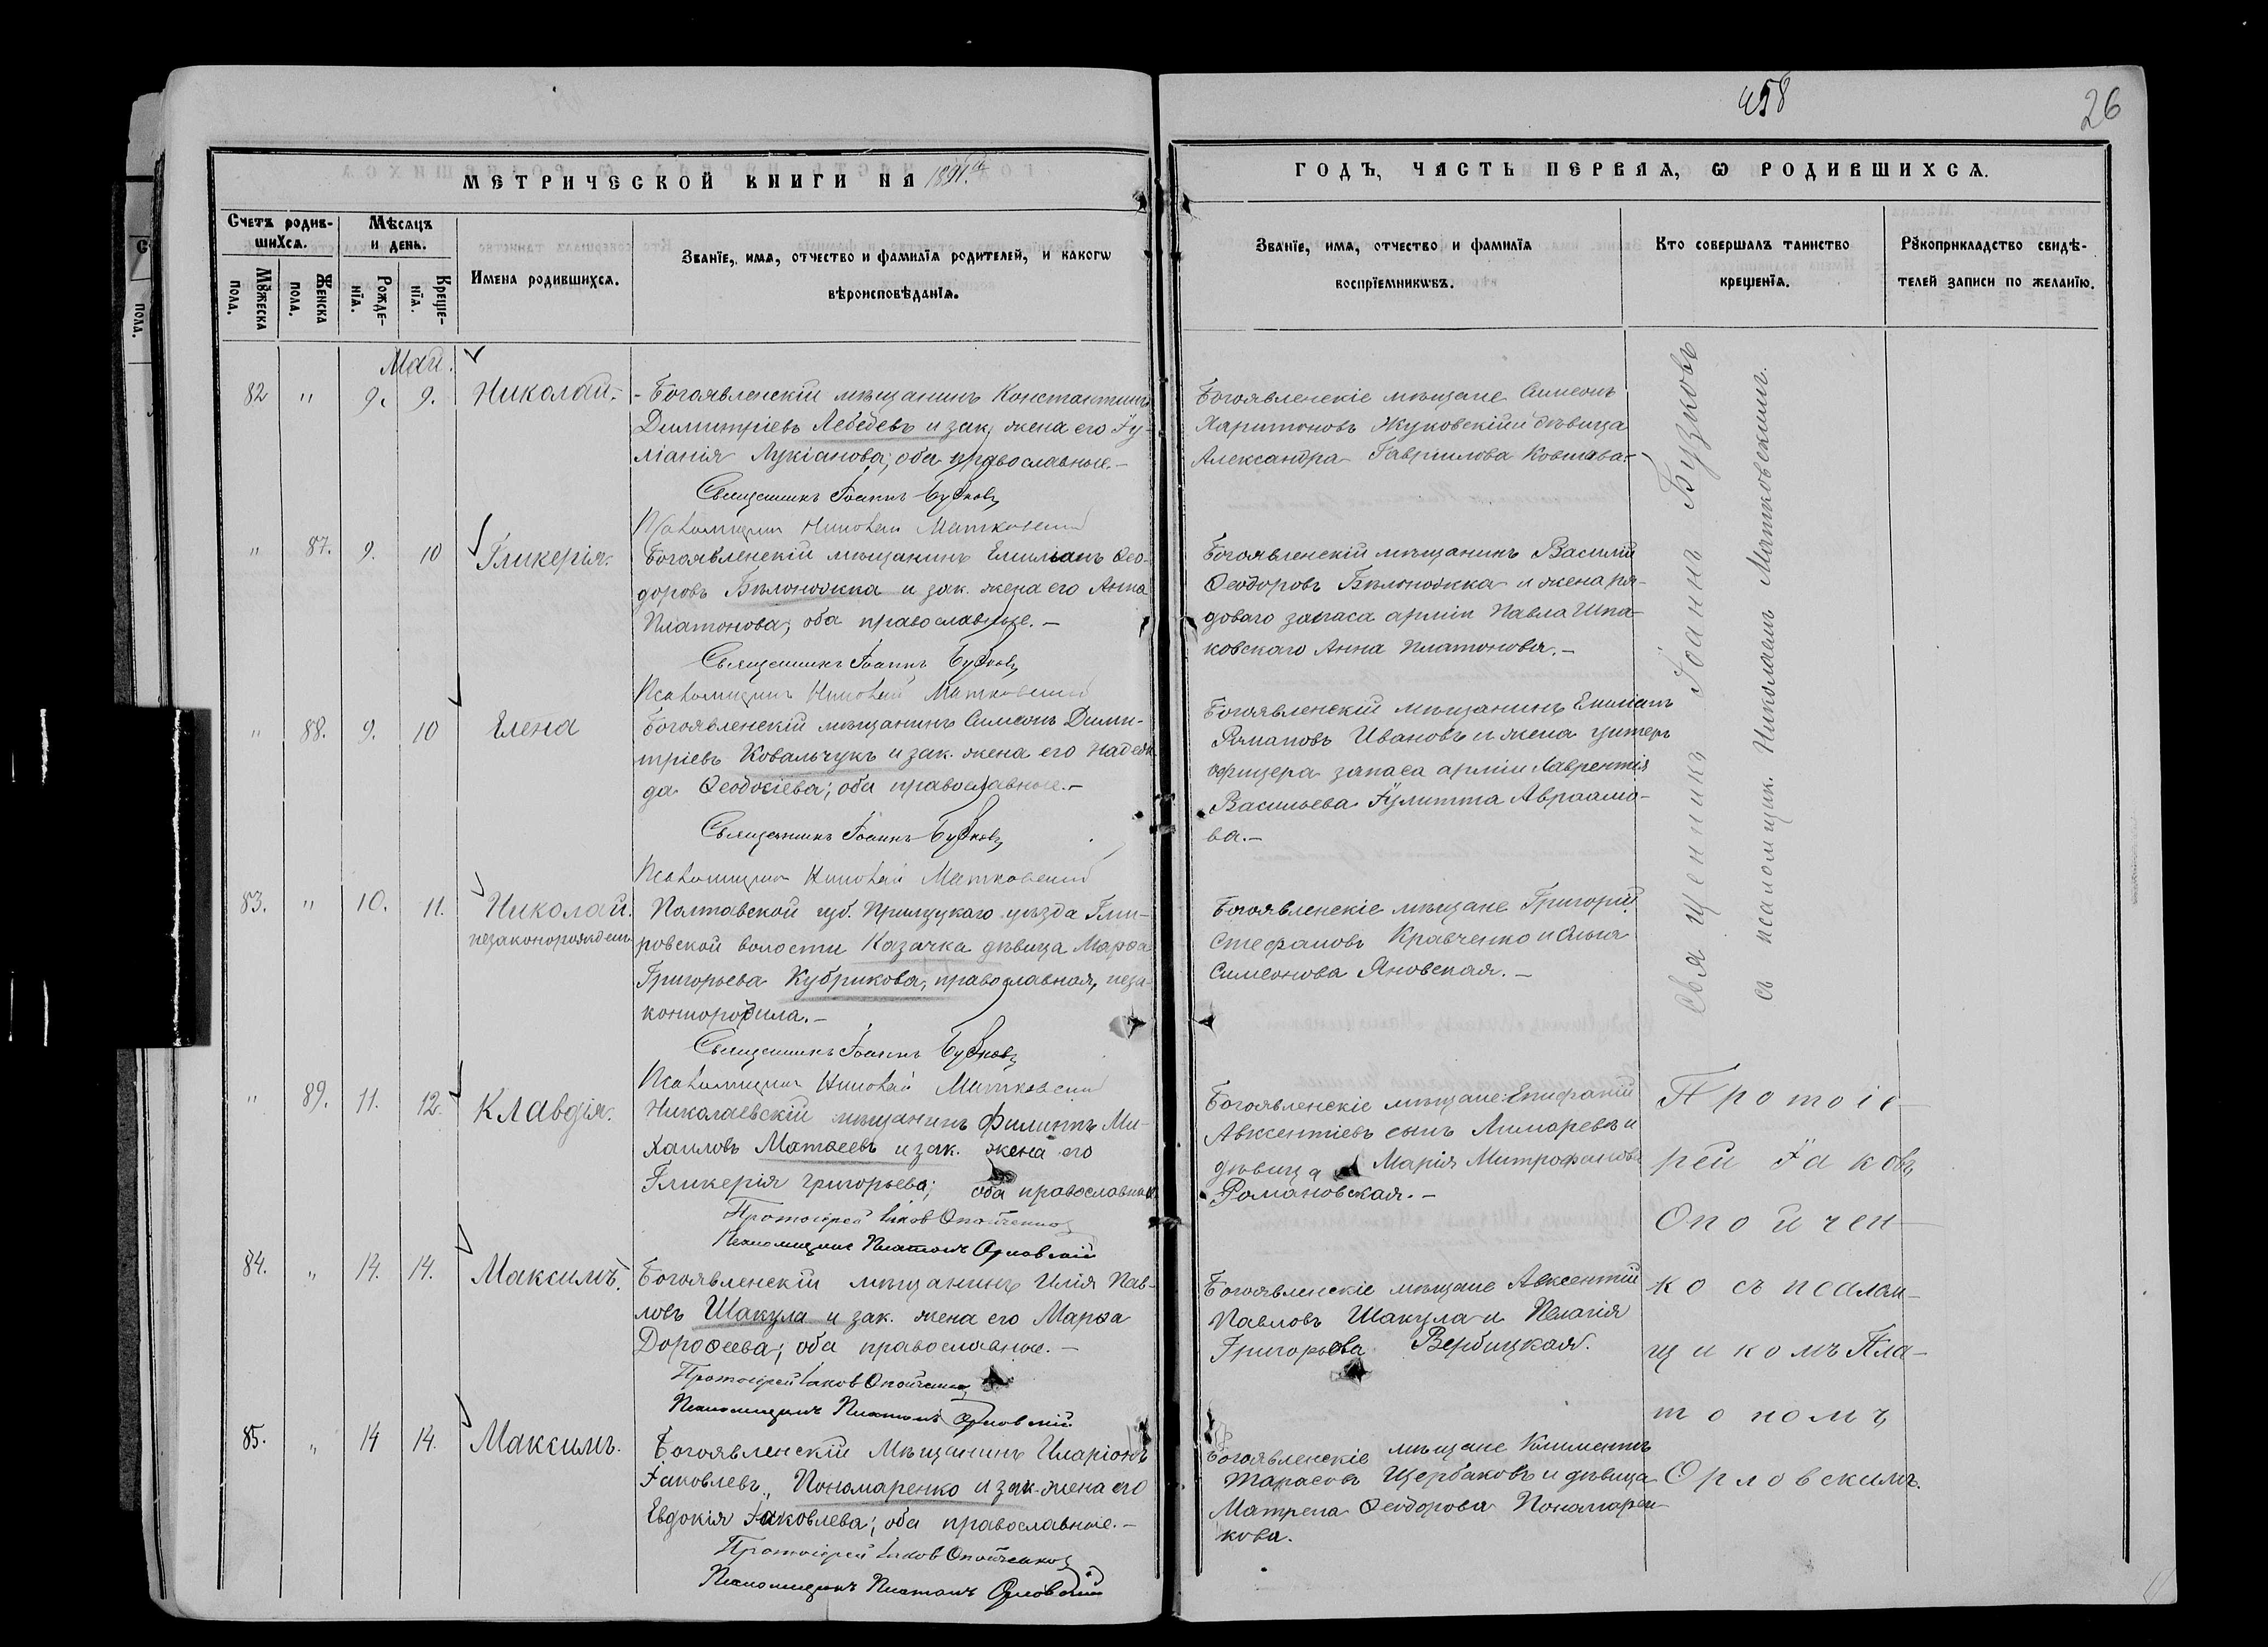 458
26
МЕТРИЧЕСКОЙ КНИГИ НА 1891.й
ГОДЪ, ЧАСТЬ ПЕРВАЯ, Ѡ РОДИВШИХСЯ.
Счетъ родив-
шихся.
Мѣсяцъ
и день.
Имена родившихся.
Званїе, имя, отчество и фамилїя родителей, и какогѡ
вѣроисповѣданїя.
Мꙋжеска
пола.
Женска
пола.
Рожде-
нїя.
Креще-
нїя.
Званїе, имя, отчество и фамилїя
воспрїемникѡвъ.
Кто совершалъ таинство
крещенїя.
Рꙋкоприкладство свидѣ-
телей записи по желанїю.
Май.
82 " 9. 9. Николай.
Богоявленскій мѣщанинъ Константинъ
Димитріевъ Лебедевъ и зак. жена его Іу-
ліанія Лукіанова; оба православные.-
Священникъ Іоаннъ Бузковъ
Псаломщикъ Николай Матковскій
Богоявленскіе мѣщане Симеонъ
Харитоновъ Жуковскій и дѣвица
Александра Гавріилова
" 87. 9. 10 Гликерія.
Богоявленскій мѣщанинъ Емиліанъ Ѳео-
доровъ Бѣлоножка и зак. жена его Анна
Платонова; оба православные.-
Священникъ Іоаннъ Бузковъ
Псаломщикъ Николай Матковскій
Богоявленскій мѣщанинъ Василій
Ѳеодоровъ Бѣлоножка и жена ря-
доваго запаса арміи Павла Шпа-
ковскаго Анна Платонова.-
" 88. 9. 10 Елена
Богоявленскій мѣщанинъ Симеонъ Дими-
тріевъ Ковальчукъ и зак. жена его Надеж-
да Ѳеодосіева; оба православные.-
Священникъ Іоаннъ Бузковъ
Псаломщикъ Николай Матковскій
Богоявленскій мѣщанинъ Емиліанъ
Романовъ Ивановъ и жена унтеръ
офицера запаса арміи Лаврентія
Васильева Іулитта Авраамо-
ва.-
83. " 10. 11. Николай.
незаконорожден.
Полтавской губ. Прилуцкаго уѣзда
ровской волости Казачка дѣвица Марѳа
Григорьева Кубрикова, православная, неза-
конородила.-
Священникъ Іоаннъ Бузковъ
Псаломщикъ Николай Матковскій
Богоявленскіе мѣщане Григорій
Стефановъ Кравченко и Ольга
Симеонова Яновская.-
Священникъ Іоаннъ Бузковъ
съ псаломщик. Николаемъ Матковскимъ.
" 89. 11. 12. Клавдія.
Николаевскій мѣщанинъ Филиппъ Ми-
хаиловъ Матвеевъ и зак. жена его
Гликерія Григорьева; оба православные
Протоіерей Іаковъ Опойченко
Псаломщикъ Платонъ Орловскій
Богоявленскіе мѣщане: Епифаній
Авксентіевъ сынъ Лимаревъ и
дѣвица Марія Митрофанова
Романовская.-
84. " 14. 14. Максимъ.
Богоявленскій мѣщанинъ Илія Пав-
ловъ Шакула и зак. жена его Марѳа
Дороѳеева; оба православные.-
Протоіерей Іаковъ Опойченко
Псаломщикъ Платонъ Орловскій
Богоявленскіе мѣщане Авксентій
Павловъ Шакула и Пелагія
Григорьева Вербицкая.
85. " 14 14. Максимъ.
Богоявленскій Мѣщанинъ Иларіонъ
Іаковлевъ Пономаренко и зак. жена его
Евдокія Іаковлева; оба православные.-
Протоіерей Іаковъ Опойченко
Псаломщикъ Платонъ Орловскій
Богоявленскіе мѣщане Климентъ
Тарасовъ Щербаковъ и дѣвица
Матрена Ѳеодорова Пономарен-
кова.
Протоіе-
рей Іаковъ
Опойчен-
ко съ псалом-
щикомъ Пла-
тономъ
Орловскимъ.